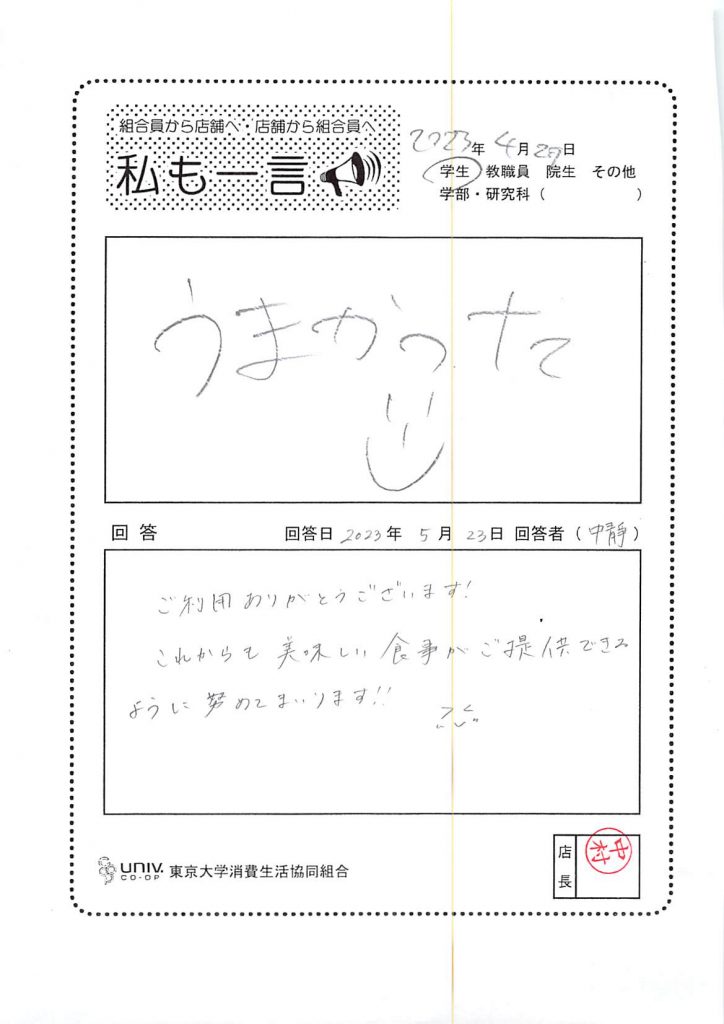 組合員から店舗へ・店舗から組合員へ
私も一言
2023年4月20日
学生 教職員 院生 その他
学部・研究科（ ）
うまかった
回答 回答日 2023年 5月 23日 回答者（中静）
ご利用ありがとうございます!
これからも美味しい食事がご提供できる
ように努めてまいります!!
UNIV. CO-OP 東京大学消費生活協同組合
店長 中村